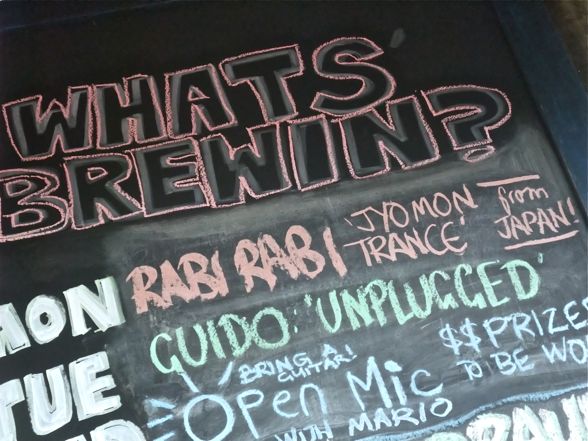 WHATS
BREWIN?
MON RABI RABI 'JYOMON TRANCE' from JAPAN!
TUE GUIDO: 'UNPLUGGED'
BRING A GUITAR!
Open Mic $$PRIZE
WITH MARIO TO BE WO